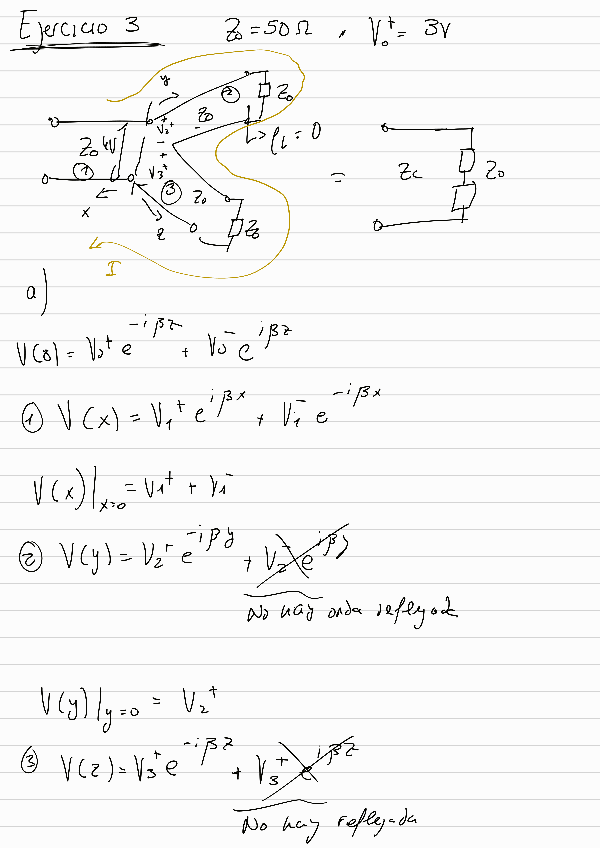 Ejercicio 3 Z₀ = 50 Ω , V₀⁺ = 3V
y
② Z₀
Z₀ V₂⁺ Z₀ ρL = 0
-
+
Z₀ 4V - +
① V₃⁺ ③ Z₀ = ZC Z₀
x z Z₀
I
a)
V(z) = V₀⁺ e^{-iβz} + V₀⁻ e^{iβz}
① V(x) = V₁⁺ e^{iβx} + V₁⁻ e^{-iβx}
V(x)|ₓ₌₀ = V₁⁺ + V₁⁻
② V(y) = V₂⁺ e^{-iβy} + V₂⁻ e^{iβy}
No hay onda reflejada
V(y)|y=0 = V₂⁺
③ V(z) = V₃⁺ e^{-iβz} + V₃⁺ e^{iβz}
No hay reflejada